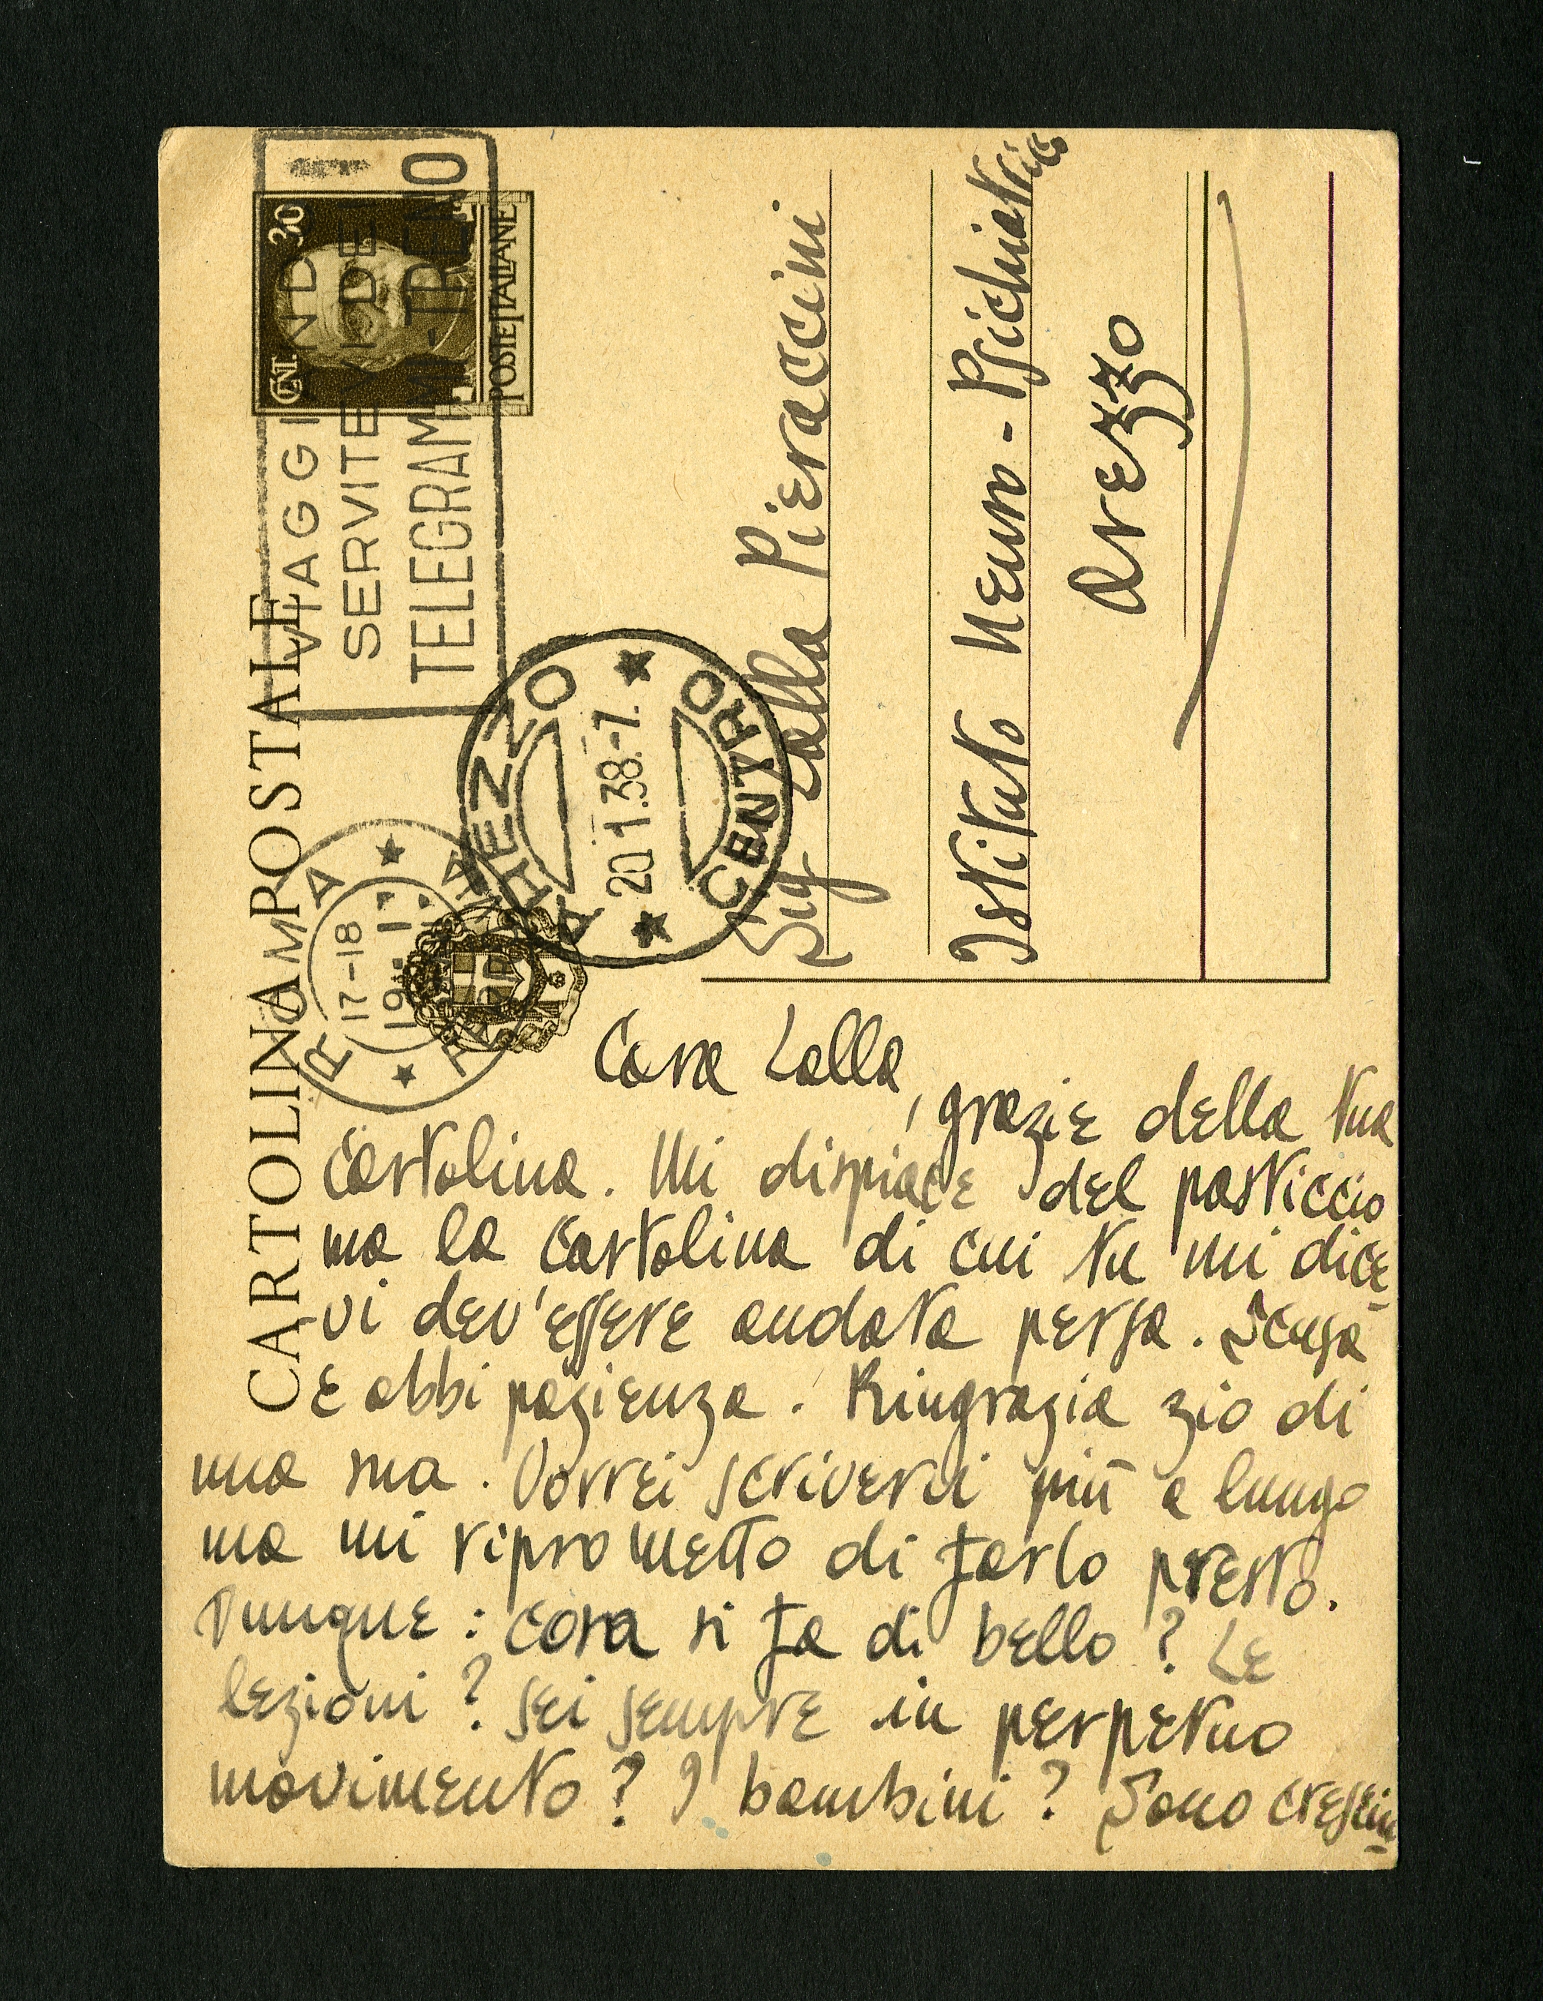 CARTOLINA POSTALE
CENT. 30
POSTE ITALIANE
VIAGGIANDO
SERVITEVI DEI
TELEGRAMMI-TRENO
ROMA
17-18
19. 1
FERROVIA
AREZZO
20.1.38.-7.
CENTRO
Sig Lalla Pieraccini
Istituto Neuro-Psichiatrico
Arezzo
Cara Lalla,
grazie della tua
cartolina. Mi dispiace del pasticcio
ma la cartolina di cui tu mi dice-
vi dev'essere andata persa. Scusa
e abbi pazienza. Ringrazia zio di
ma. Vorrei scriverci più a lungo
ma mi riprometto di farlo presto.
Dunque: cosa si fa di bello? Le
lezioni? Sei sempre in perpetuo
movimento? I bambini? Sono cresciu